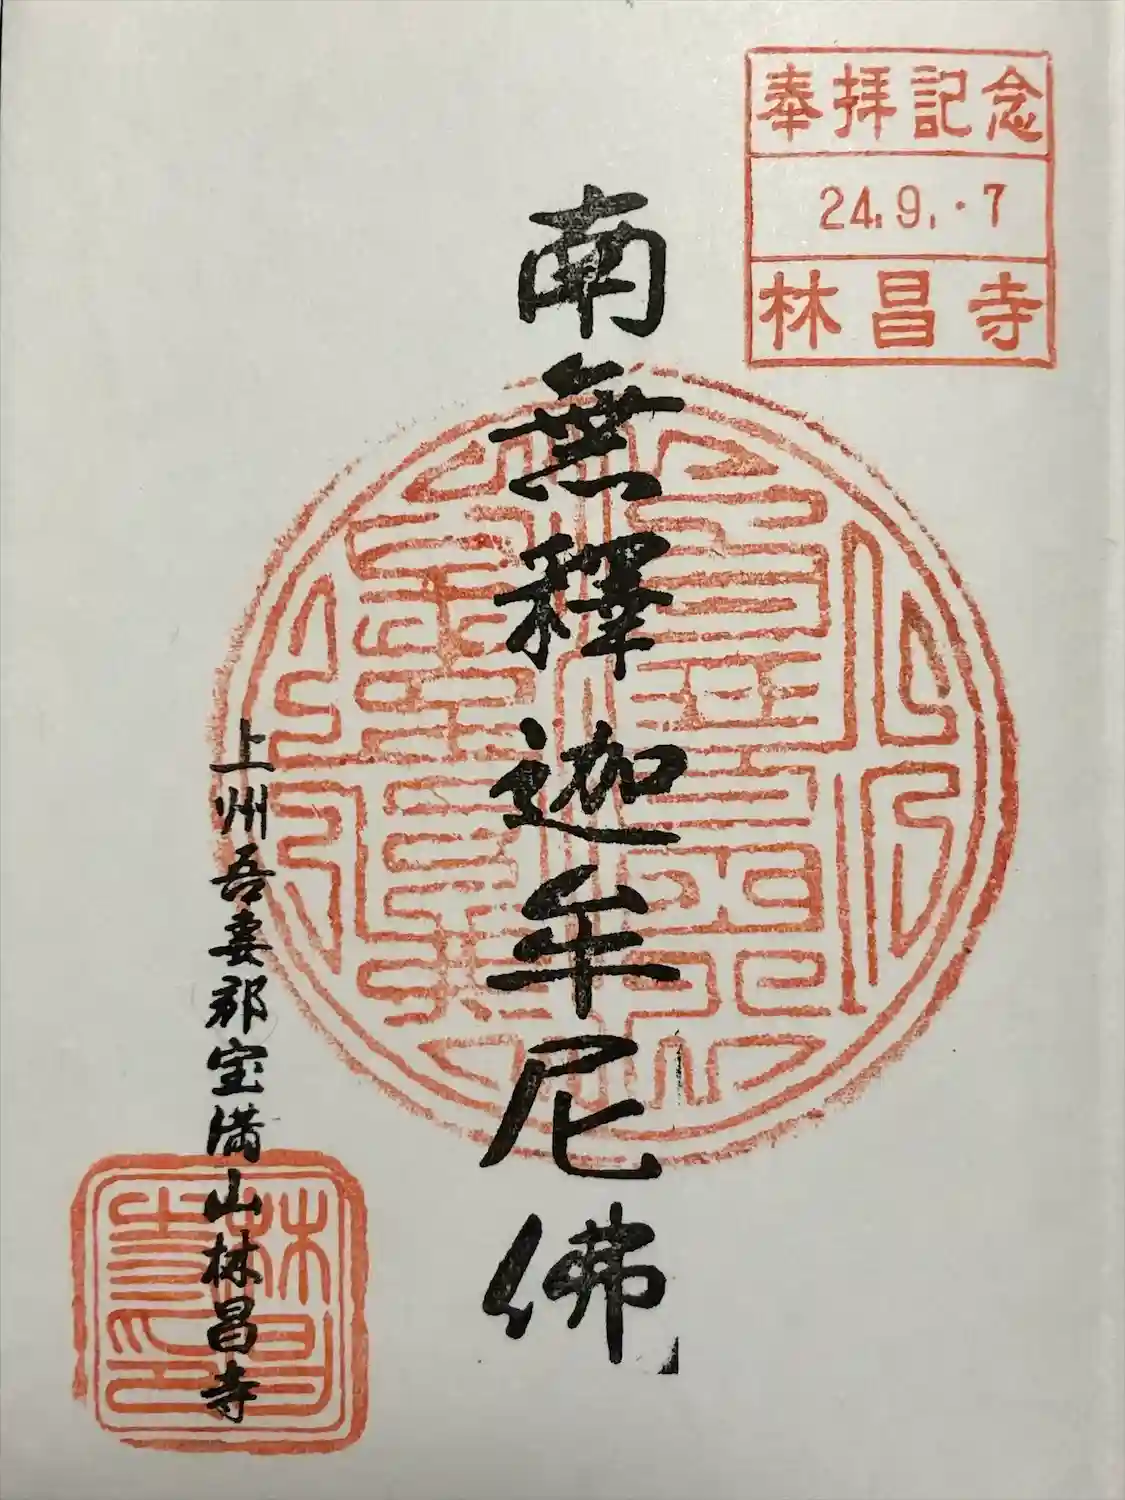 奉拝記念
24.9.・7
林昌寺
南無釋迦牟尼佛
上州吾妻郡宝満山林昌寺
林昌寺印